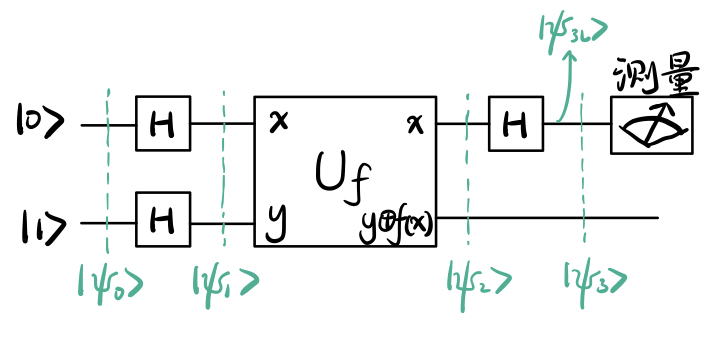 |ψ₃ₗ⟩
测量
|0⟩ H x x H
U_f
|1⟩ H y y⊕f(x)
|ψ₀⟩ |ψ₁⟩ |ψ₂⟩ |ψ₃⟩